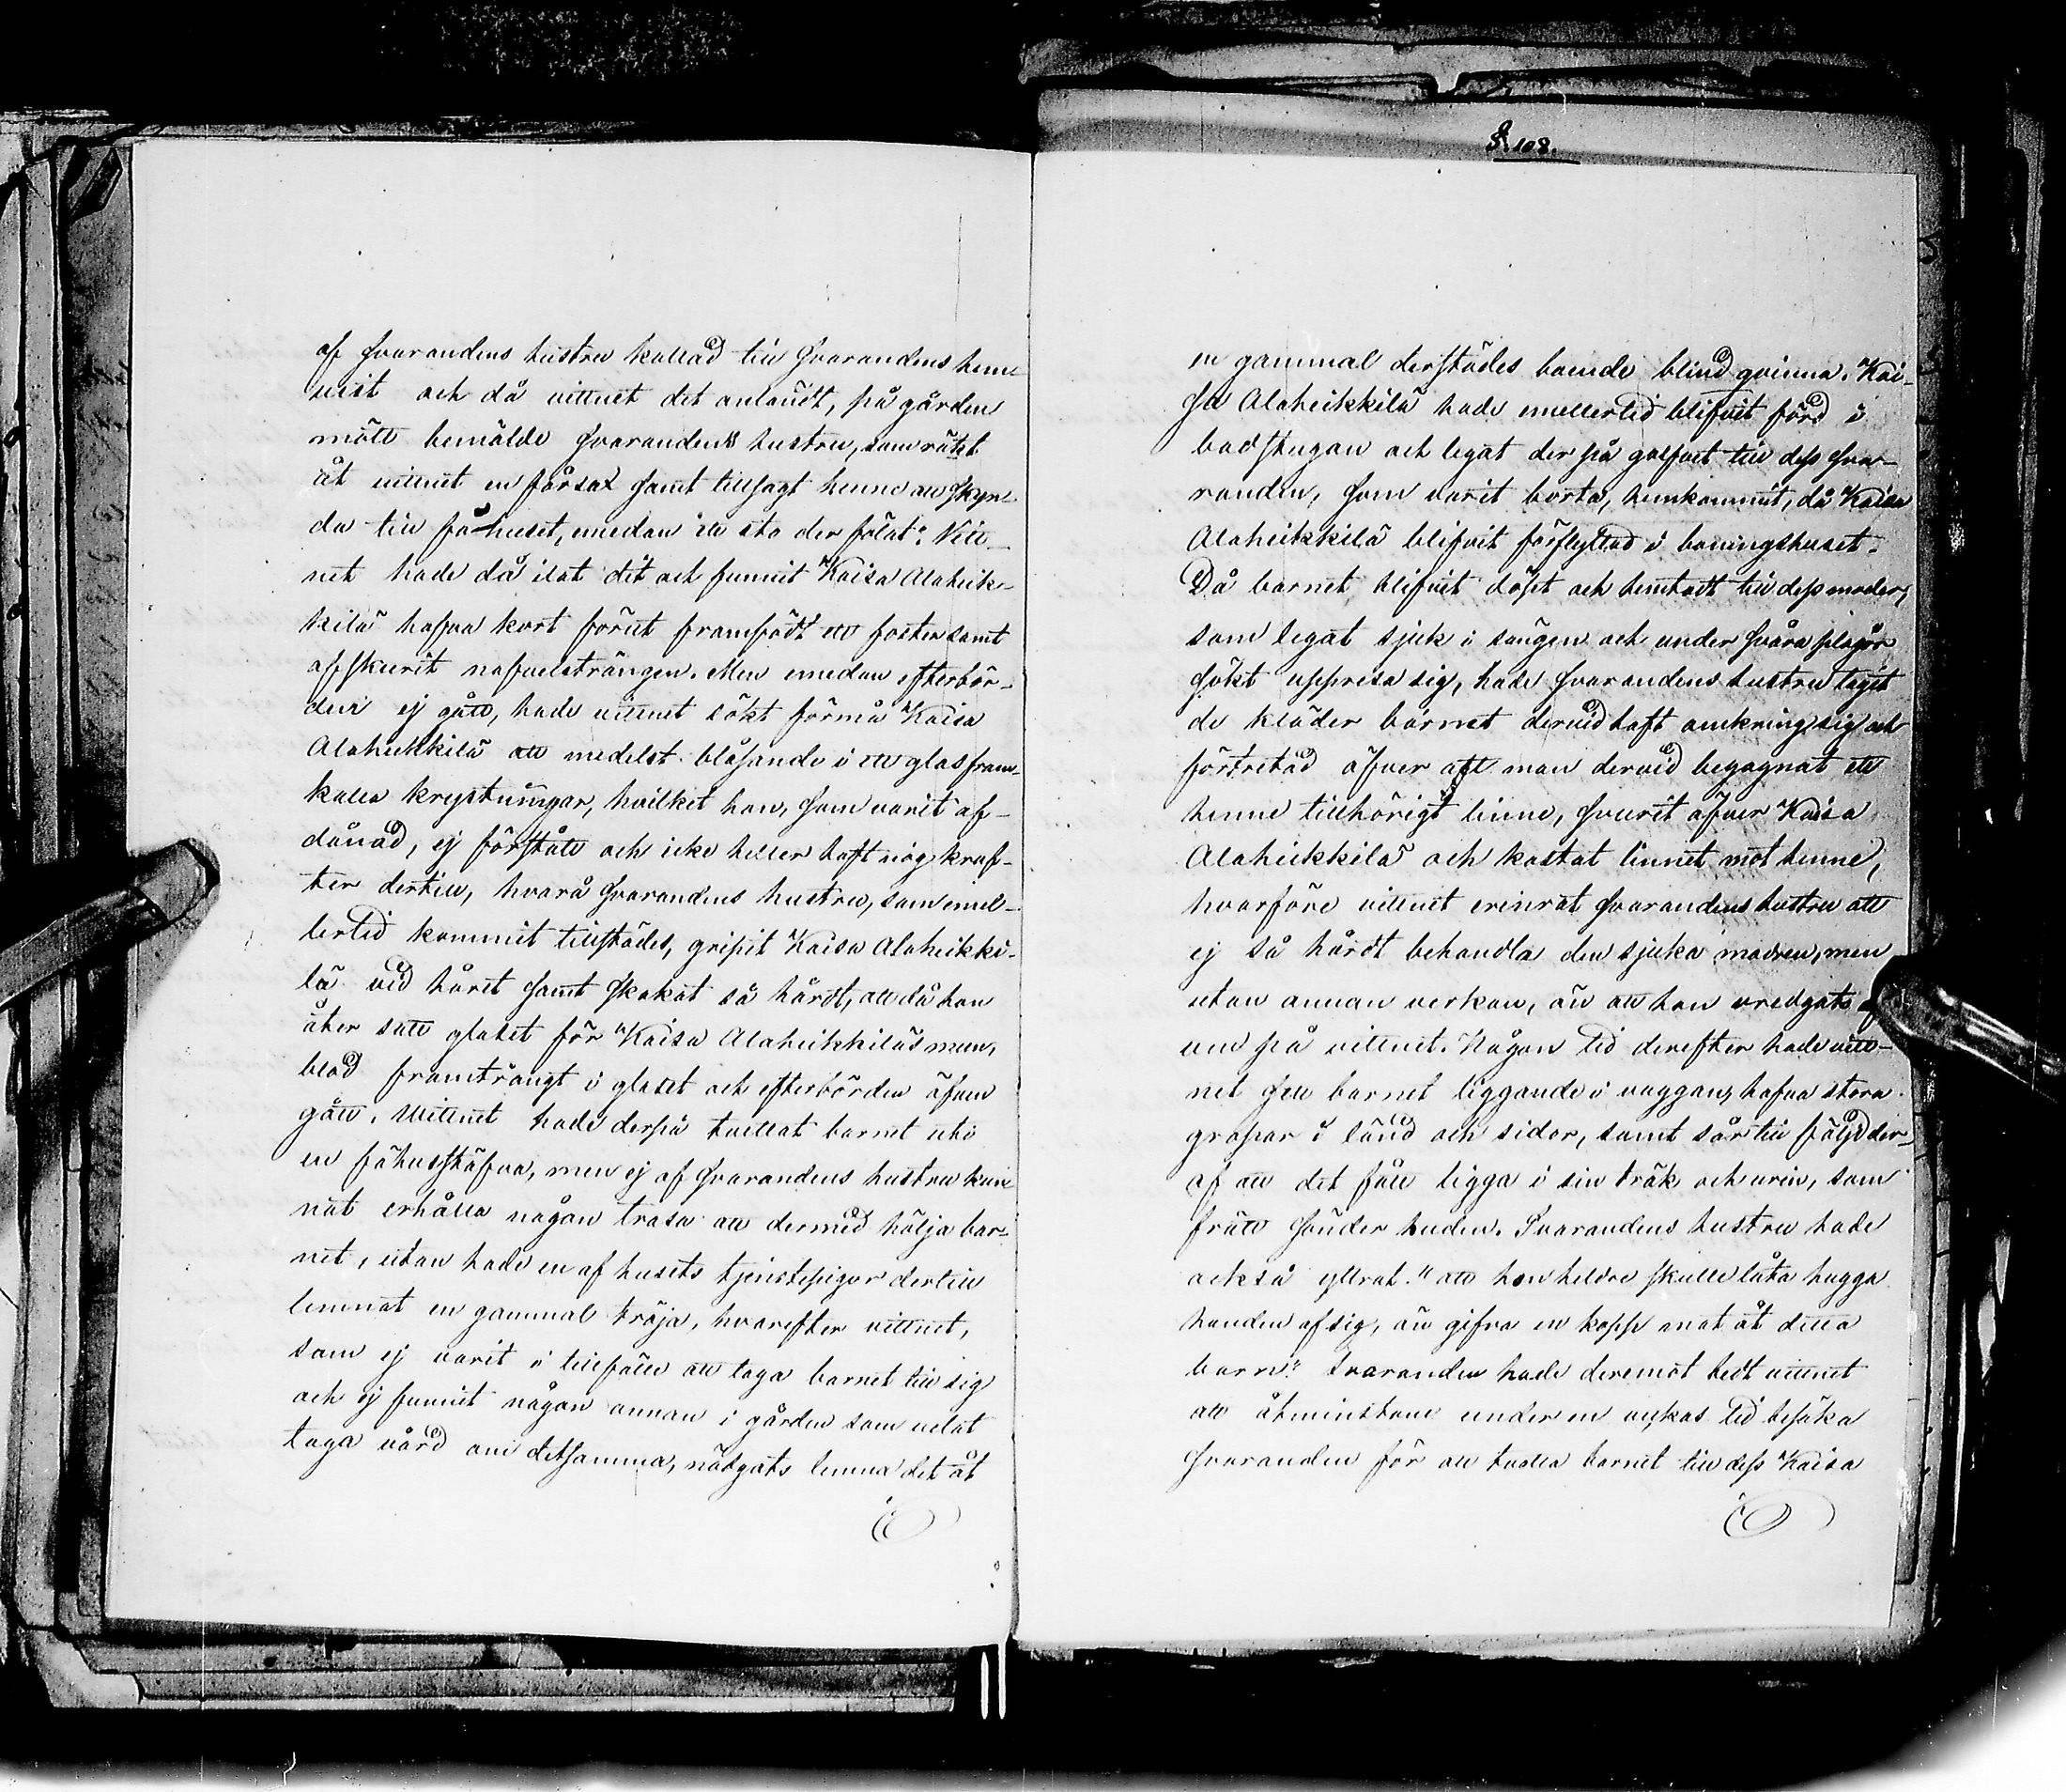 af svarandens hustru kallad till svarandens hem-
vist och då vittnet dit anländt, på gården
mött bemälde svarandens hustru, som räckt
åt vittnet en fårsax samt tillsagt henne att skyn-
da till fähuset, emedan "en sto der fölat". Vitt-
net hade då ilat dit och funnit Kaisa Alaheik-
kilä hafva kort förut framfödt ett foster samt
afskurit nafvelsträngen. Men emedan efterbör-
den ej gått, hade vittnet sökt förmå Kaisa
Alaheikkilä att medelst blåsande i ett glas fram-
kalla krystningar, hvilket hon, som varit af-
dånad, ej förstått och icke heller haft nog kraf-
ter dertill, hvarå svarandens hustru, som emel-
lertid kommit tillstädes, gripit Kaisa Alaheikki-
lä vid håret samt skakat så hårdt, att då hon
åter satt glaset för Kaisa Alaheikkiläs mun,
blod framträngt i glaset och efterbörden äfven
gått. Wittnet hade derpå tvättat barnet uti
en fähusstäfva, men ej af svarandens hustru kun-
nat erhålla någon trasa att dermed hölja bar-
net, utan hade en af husets tjenstepigor dertill
lemnat en gammal tröja, hvarefter vittnet,
som ej varit i tillfälle att taga barnet till sig
och ej funnit någon annan i gården som velat
taga vård om detsamma, nödgats lemna det åt
§. 108.
en gammal derstädes boende blind qvinna. Kai-
sa Alaheikkilä hade emellertid blifvit förd i
badstugan och legat der på golfvet till dess sva-
randen, som varit borta, hemkommit, då Kaisa
Alaheikkilä blifvit förflyttad i boningshuset.
Då barnet blifvit döpt och hemtadt till dess moder,
som legat sjuk i sängen och under svåra plågor
sökt uppresa sig, hade svarandens hustru tagit
de kläder barnet dervid haft omkring sig och
förtretad öfver att man dervid begagnat ett
henne tillhörigt linne, svurit öfver Kaisa
Alaheikkilä och kastat linnet mot henne,
hvarföre vittnet erinrat svarandens hustru att
ej så hårdt behandla den sjuka modren, men
utan annan verkan, än att hon vredgats
ven på vittnet. Någon tid derefter hade vitt-
net sett barnet liggande i vaggan, hafva stora
gropar i länd och sidor, samt sår till följd der-
af att det fått ligga i sin träk och urin, som
frätt sönder huden. Svarandens hustru hade
också yttrat: "att hon heldre skulle låta hugga
handen af sig, än gifva en kopp mat åt detta
barn". Svaranden hade deremot bedt vittnet
att åtminstone under en veckas tid besöka
svaranden för att tvätta barnet till dess Kaisa